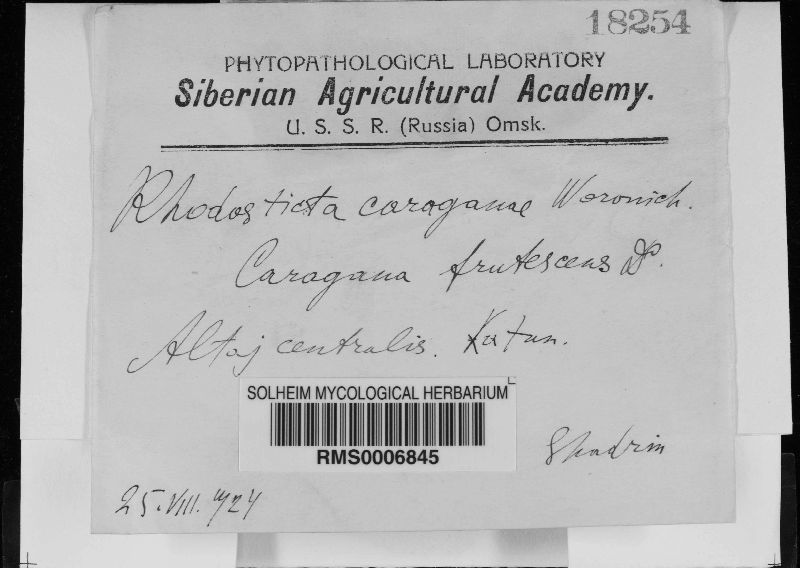 18254
PHYTOPATHOLOGICAL LABORATORY
Siberian Agricultural Academy.
U. S. S. R. (Russia) Omsk.
Rhodosticta caraganae Woronich.
Caragana frutescens DC.
Altaj centralis. Katun.
SOLHEIM MYCOLOGICAL HERBARIUM
RMS0006845
Shadrin
25.VIII.1924